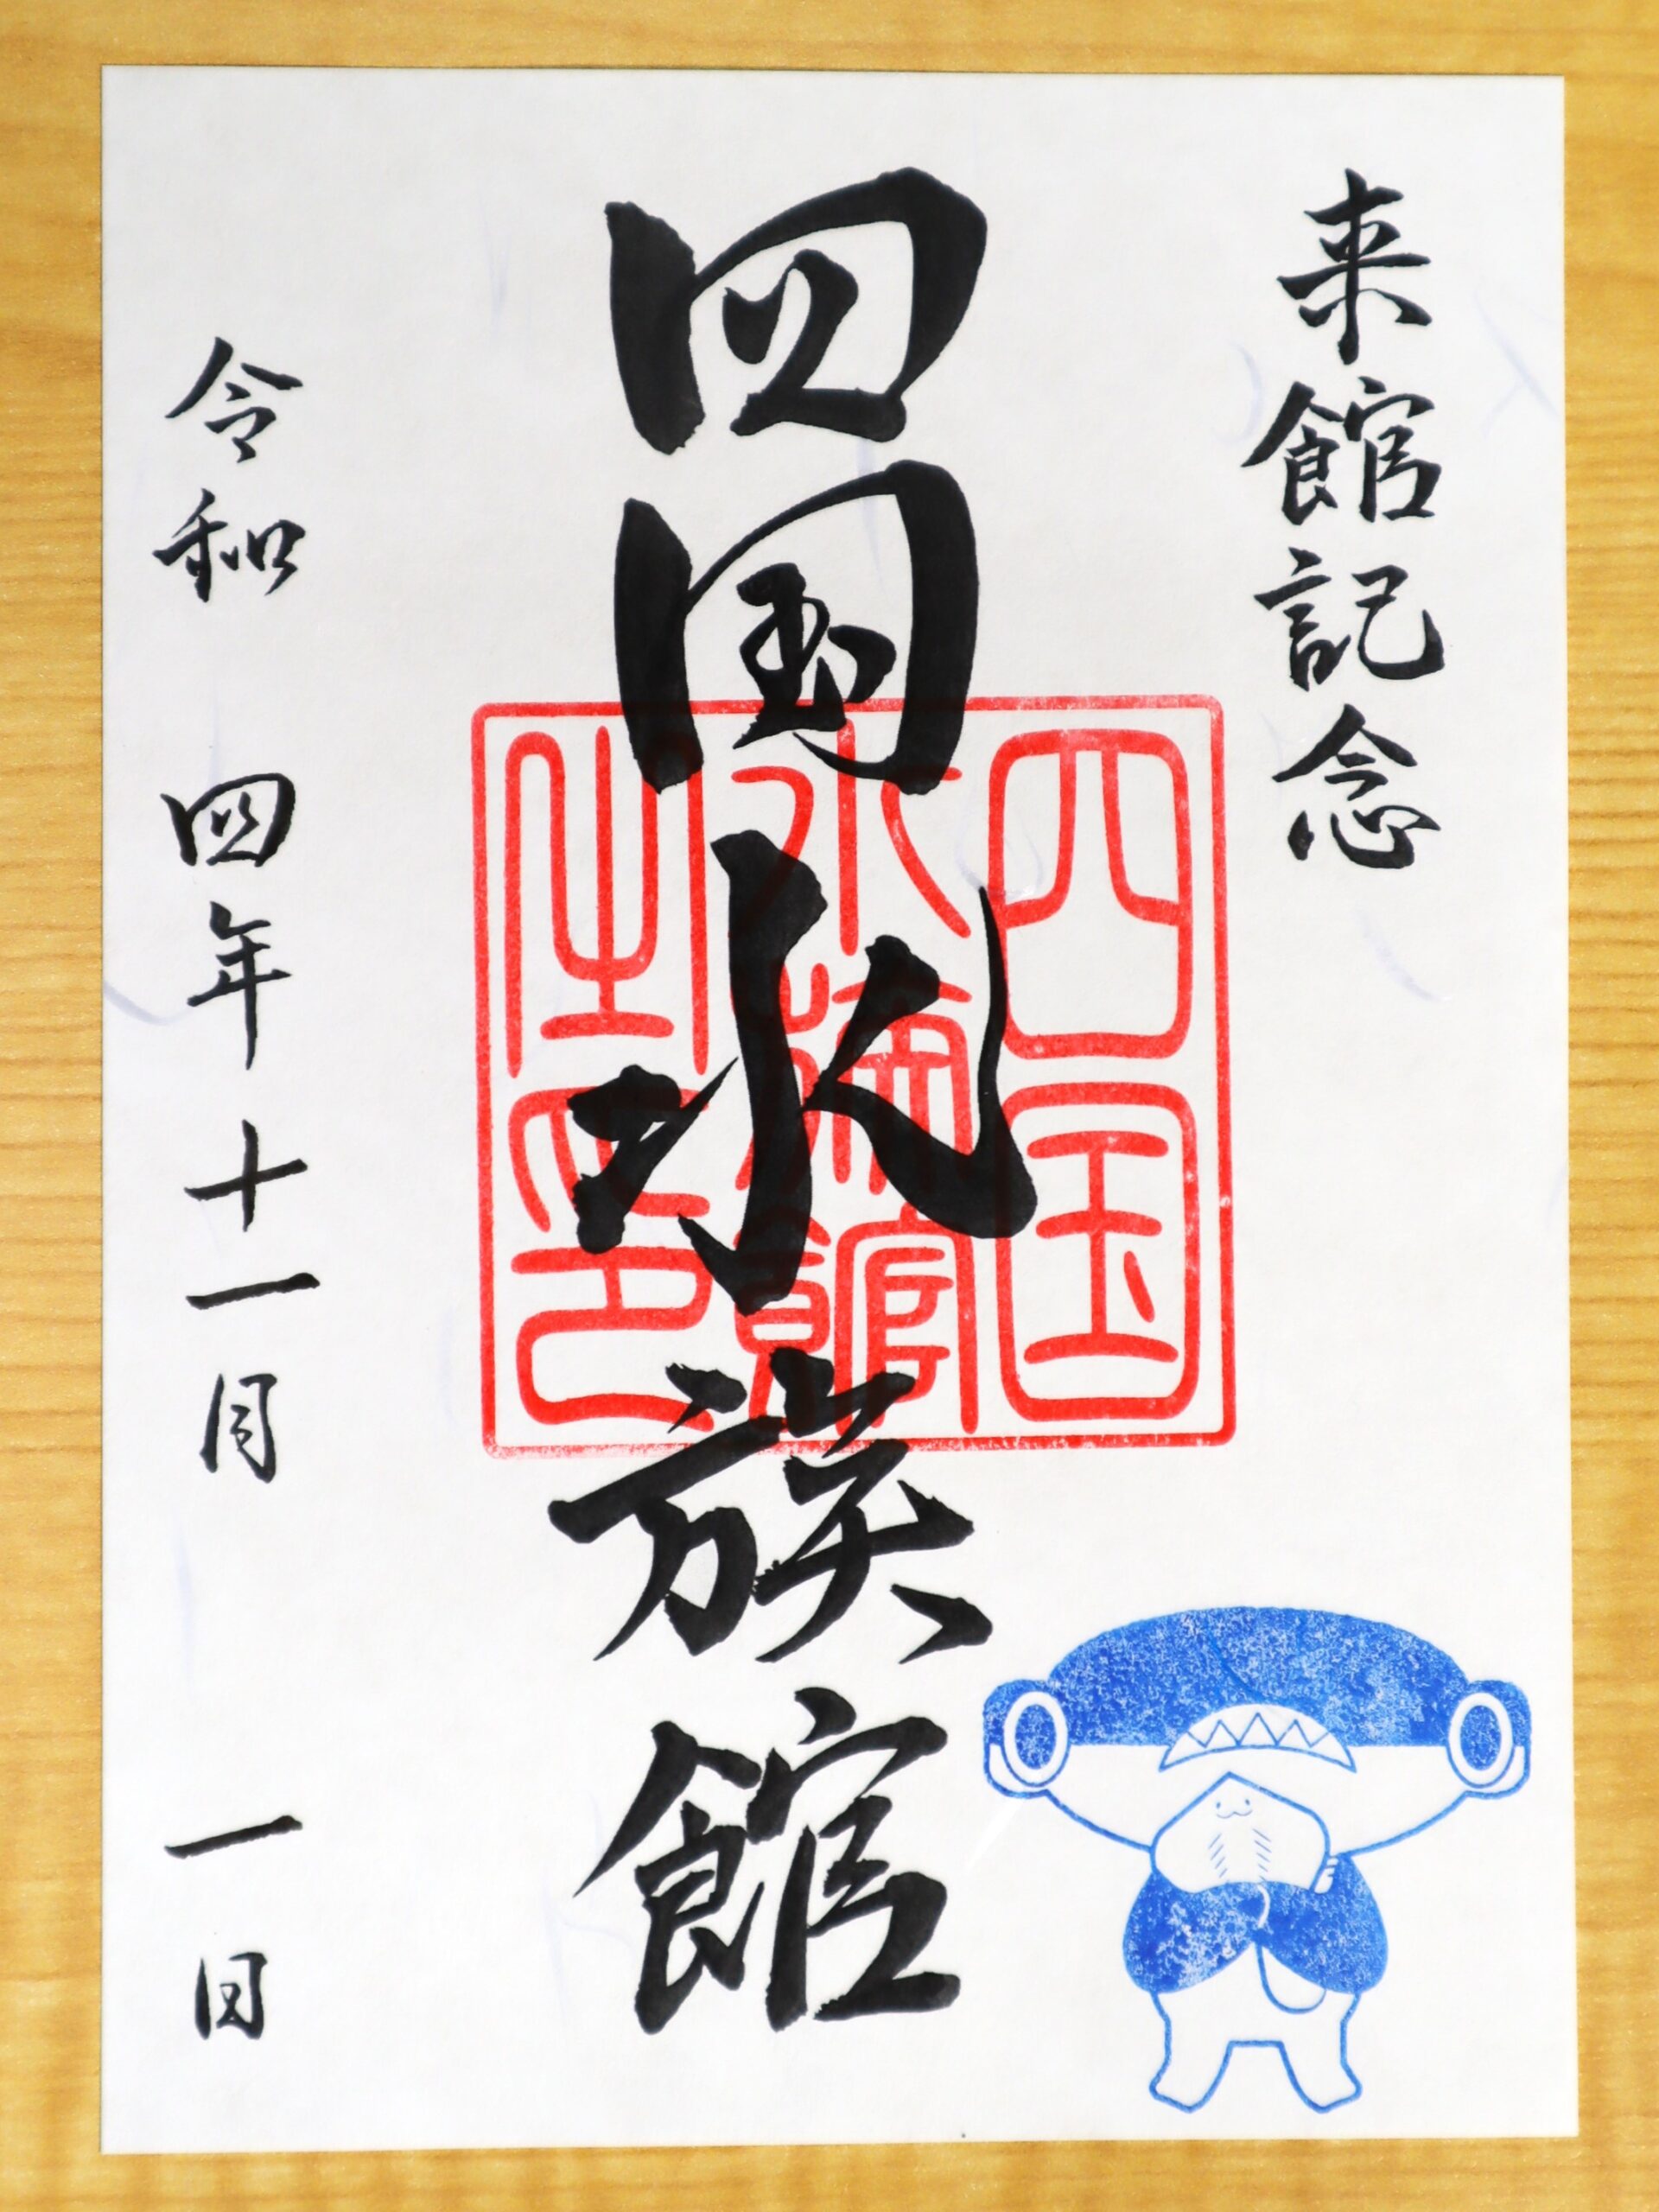 来館記念
四国水族館
四国
水族館
之印
令和 四年十一月 一日